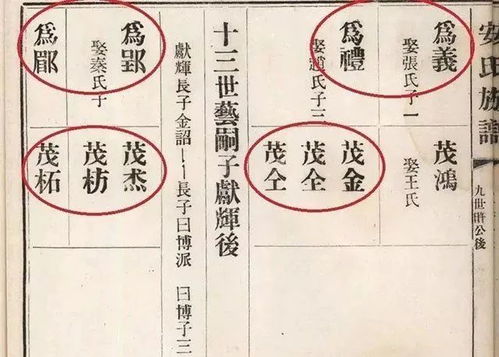 安氏族譜
九世時公後
爲義
娶張氏子一
爲禮
娶趙氏子三
茂鴻
娶王氏
茂金
茂仝
茂仝
十三世藝嗣子獻輝後
獻輝長子金詔——長子曰博派 曰博子三
爲郢
娶秦氏子
爲郿
茂杰
茂枋
茂柘